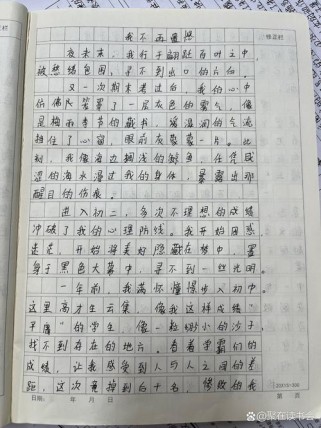 我不再置身
夜未央，我行于翩跹百叶之中，
被愁绪包围，寻不到出口的方向。
又一次期末考过后，我的心中
仿佛阵笼罩了一层灰色的雾气，像
是梅雨季节的藏书，潮湿闷的气流
挡住了心窗，眼前灰蒙蒙一片。此
刻，我像岸边搁浅的鲸鱼，任凭咸
涩的海水漫过我的身体，暴露出那
醒目的伤痕。
进入初二，多次不理想的成绩
冲破了我的心理防线。我开始困惑
迷茫，开始将美好隐藏在梦中，置
身于黑色大幕中，寻不到一丝光明
一年前，我满怀憧憬步入初中
这里高才生云集，像我这样成绩“
平庸”的学生，像一粒渺小的沙子，
找不到存在的地方。看着学霸们的
成绩，让我感受到人与人之间的差
距，这次竟掉到白十名，惨败的我
日期： 年 月 日
第 页
@聚在读书云